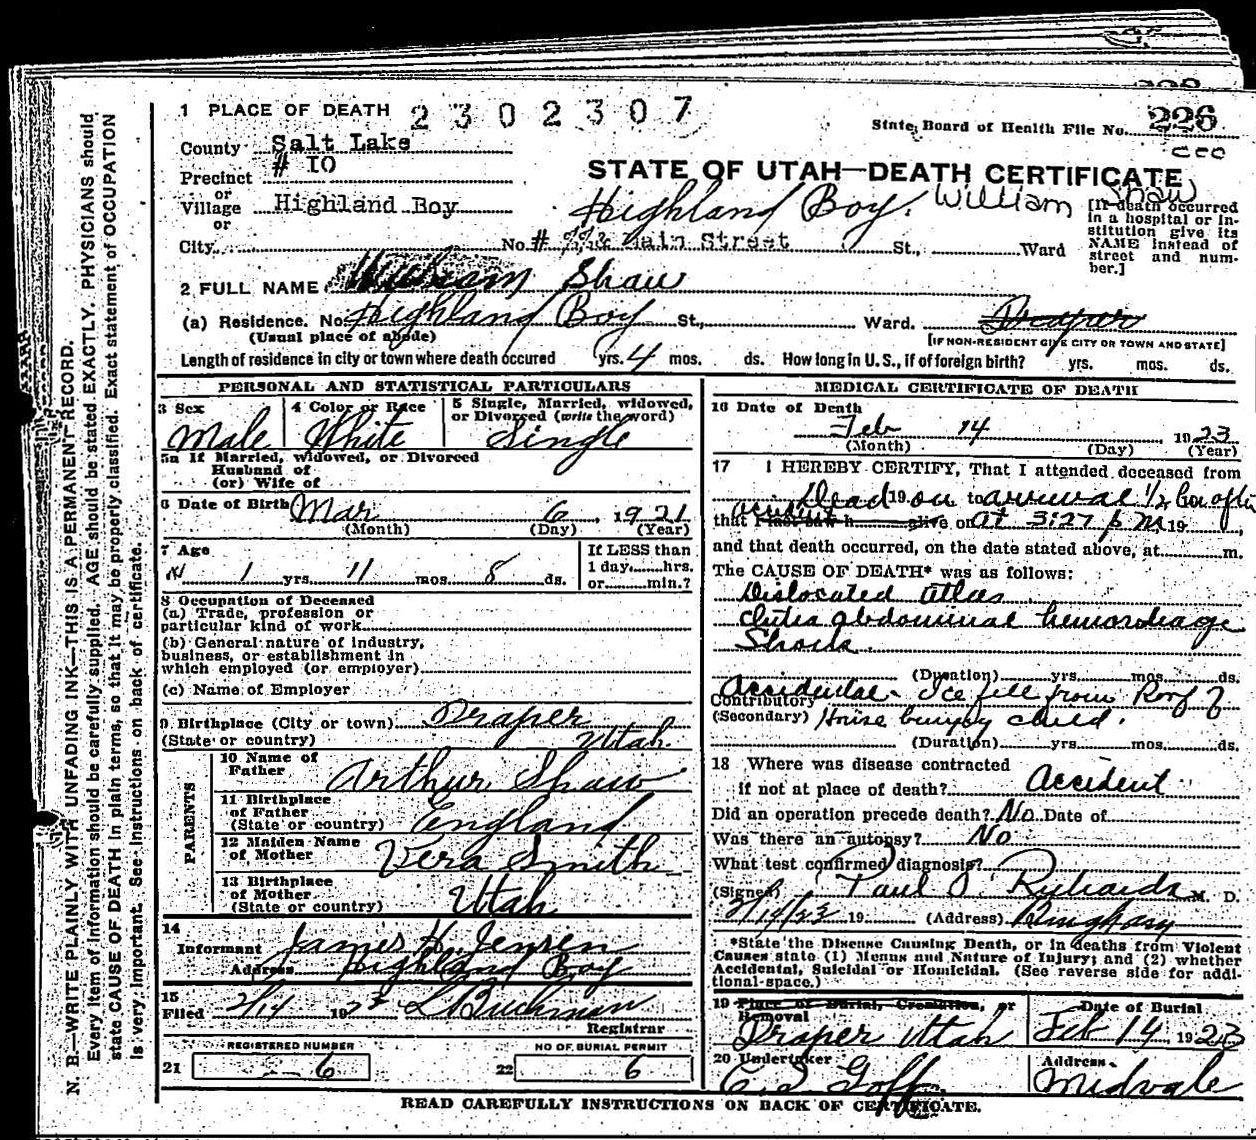 1 PLACE OF DEATH 2302307
State Board of Health File No. 226
County Salt Lake
Precinct # 10
or
Village Highland Boy
or
City No. # Main Street St., Ward
STATE OF UTAH—DEATH CERTIFICATE
Highland Boy. William Shaw
[If death occurred in a hospital or institution give its NAME instead of street and number.]
2 FULL NAME William Shaw
(a) Residence. No. Highland Boy St., Ward. Draper
(Usual place of abode)
[IF NON-RESIDENT GIVE CITY OR TOWN AND STATE]
Length of residence in city or town where death occured yrs. 4 mos. ds. How long in U.S., if of foreign birth? yrs. mos. ds.
PERSONAL AND STATISTICAL PARTICULARS
3 Sex
Male
4 Color or Race
White
5 Single, Married, widowed, or Divorced (write the word)
Single
5a If Married, widowed, or Divorced
Husband of
(or) Wife of
6 Date of Birth Mar 6, 1921
(Month) (Day) (Year)
7 Age
1 yrs. 11 mos. 8 ds.
If LESS than
1 day hrs.
or min.?
8 Occupation of Deceased
(a) Trade, profession or
particular kind of work
(b) General nature of industry,
business, or establishment in
which employed (or employer)
(c) Name of Employer
9 Birthplace (City or town) Draper
(State or country) Utah
PARENTS
10 Name of
Father Arthur Shaw
11 Birthplace
of Father
(State or country) England
12 Maiden Name
of Mother Vera Smith
13 Birthplace
of Mother
(State or country) Utah
14
Informant James H. Jensen
Address Highland Boy
15
Filed 2/14 1923 L Buchman
Registrar
REGISTERED NUMBER
21 6
NO OF BURIAL PERMIT
22 6
MEDICAL CERTIFICATE OF DEATH
16 Date of Death
Feb 14 1923
(Month) (Day) (Year)
17 I HEREBY CERTIFY, That I attended deceased from
Dead 19 on to arrival 1/2 hr after
accident
that I last saw h alive on at 3:27 p m, 19
and that death occurred, on the date stated above, at m.
The CAUSE OF DEATH* was as follows:
Dislocated atlas
Intra abdominal hemorrhage
Shock
(Duration) yrs. mos. ds.
Accidental - Ice fell from Roof of
Contributory
(Secondary) House burying child.
(Duration) yrs. mos. ds.
18 Where was disease contracted
if not at place of death? Accident
Did an operation precede death? No Date of
Was there an autopsy? No
What test confirmed diagnosis?
(Signed) Paul S. Richards M. D.
2/14/23 19 (Address) Bingham
*State the Disease Causing Death, or in deaths from Violent
Causes state (1) Menus and Nature of Injury; and (2) whether
Accidental, Suicidal or Homicidal. (See reverse side for addi-
tional space.)
19 Place of Burial, Cremation, or
Removal
Draper Utah
Date of Burial
Feb 14, 1923
20 Undertaker
C. S. Goff
Address
Midvale
READ CAREFULLY INSTRUCTIONS ON BACK OF CERTIFICATE.
N. B.—WRITE PLAINLY WITH UNFADING INK—THIS IS A PERMANENT RECORD.
Every item of information should be carefully supplied. AGE should be stated EXACTLY. PHYSICIANS should
state CAUSE OF DEATH in plain terms, so that it may be properly classified. Exact statement of OCCUPATION
is very important. See instructions on back of certificate.